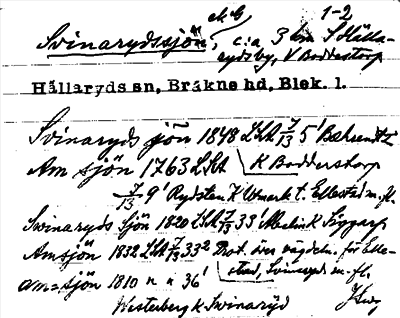 1-2
Svinarydssjön, c:a 3 km S Hälla-
rydsby, V Bodderstorp
Hällaryds sn, Bräkne hd, Blek. l.
Svinaryds sjön 1848 LSA 7/13 5'
Am sjön 1763 LSA K Bodderstorp
7/13 9' Rydsten K Utmark t. Ellestad m.fl.
Svinaryds Sjön 1820 LSA 7/13 33'
Amsjön 1832 LSA 7/13 33² Prot. över vägdeln. för Elle-
stad, Svinaryd m.fl.
Am=sjön 1810 " " 36'
Westerberg K Swinaryd